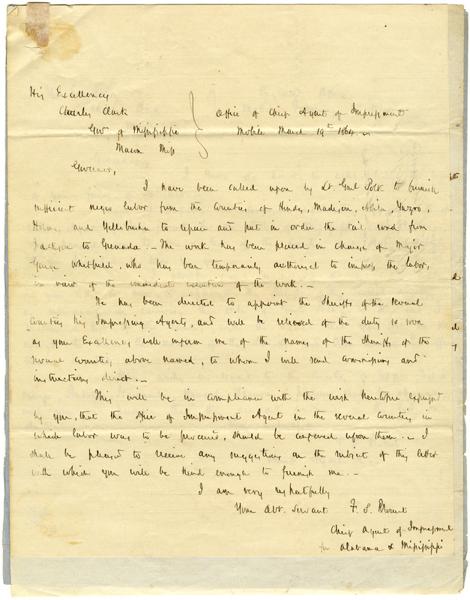 His Excellency
Charles Clark
Gov of Mississippi
Macon Miss
Office of Chief Agent of Impressment
Mobile March 19th 1864
Governor,
I have been called upon by Lt. Genl Polk to furnish
sufficient negro labor from the Counties of Hinds, Madison, Yazoo,
Holmes and Yallobusha to repair and put in order the rail road from
Jackson to Grenada. The work has been placed in charge of Major
George Whitfield, who has been temporarily authorised to impress the labor,
in view of the immediate execution of the work. —
He has been directed to appoint the Sheriffs of the several
Counties his Impressing Agents, and will be relieved of the duty so soon
as your Excellency will inform me of the names of the Sheriffs of the
several Counties above named, to whom I will send commissions and
instructions direct. —
This will be in compliance with the wish heretofore expressed
by you, that the office of Impressment Agent in the several Counties in
which labor was to be procured, should be conferred upon them. — I
shall be pleased to receive any suggestions on the subject of this letter
with which you will be kind enough to furnish me. —
I am very respectfully
Your obt. servant F. S. Blount
Chief Agent of Impressment
for Alabama & Mississippi